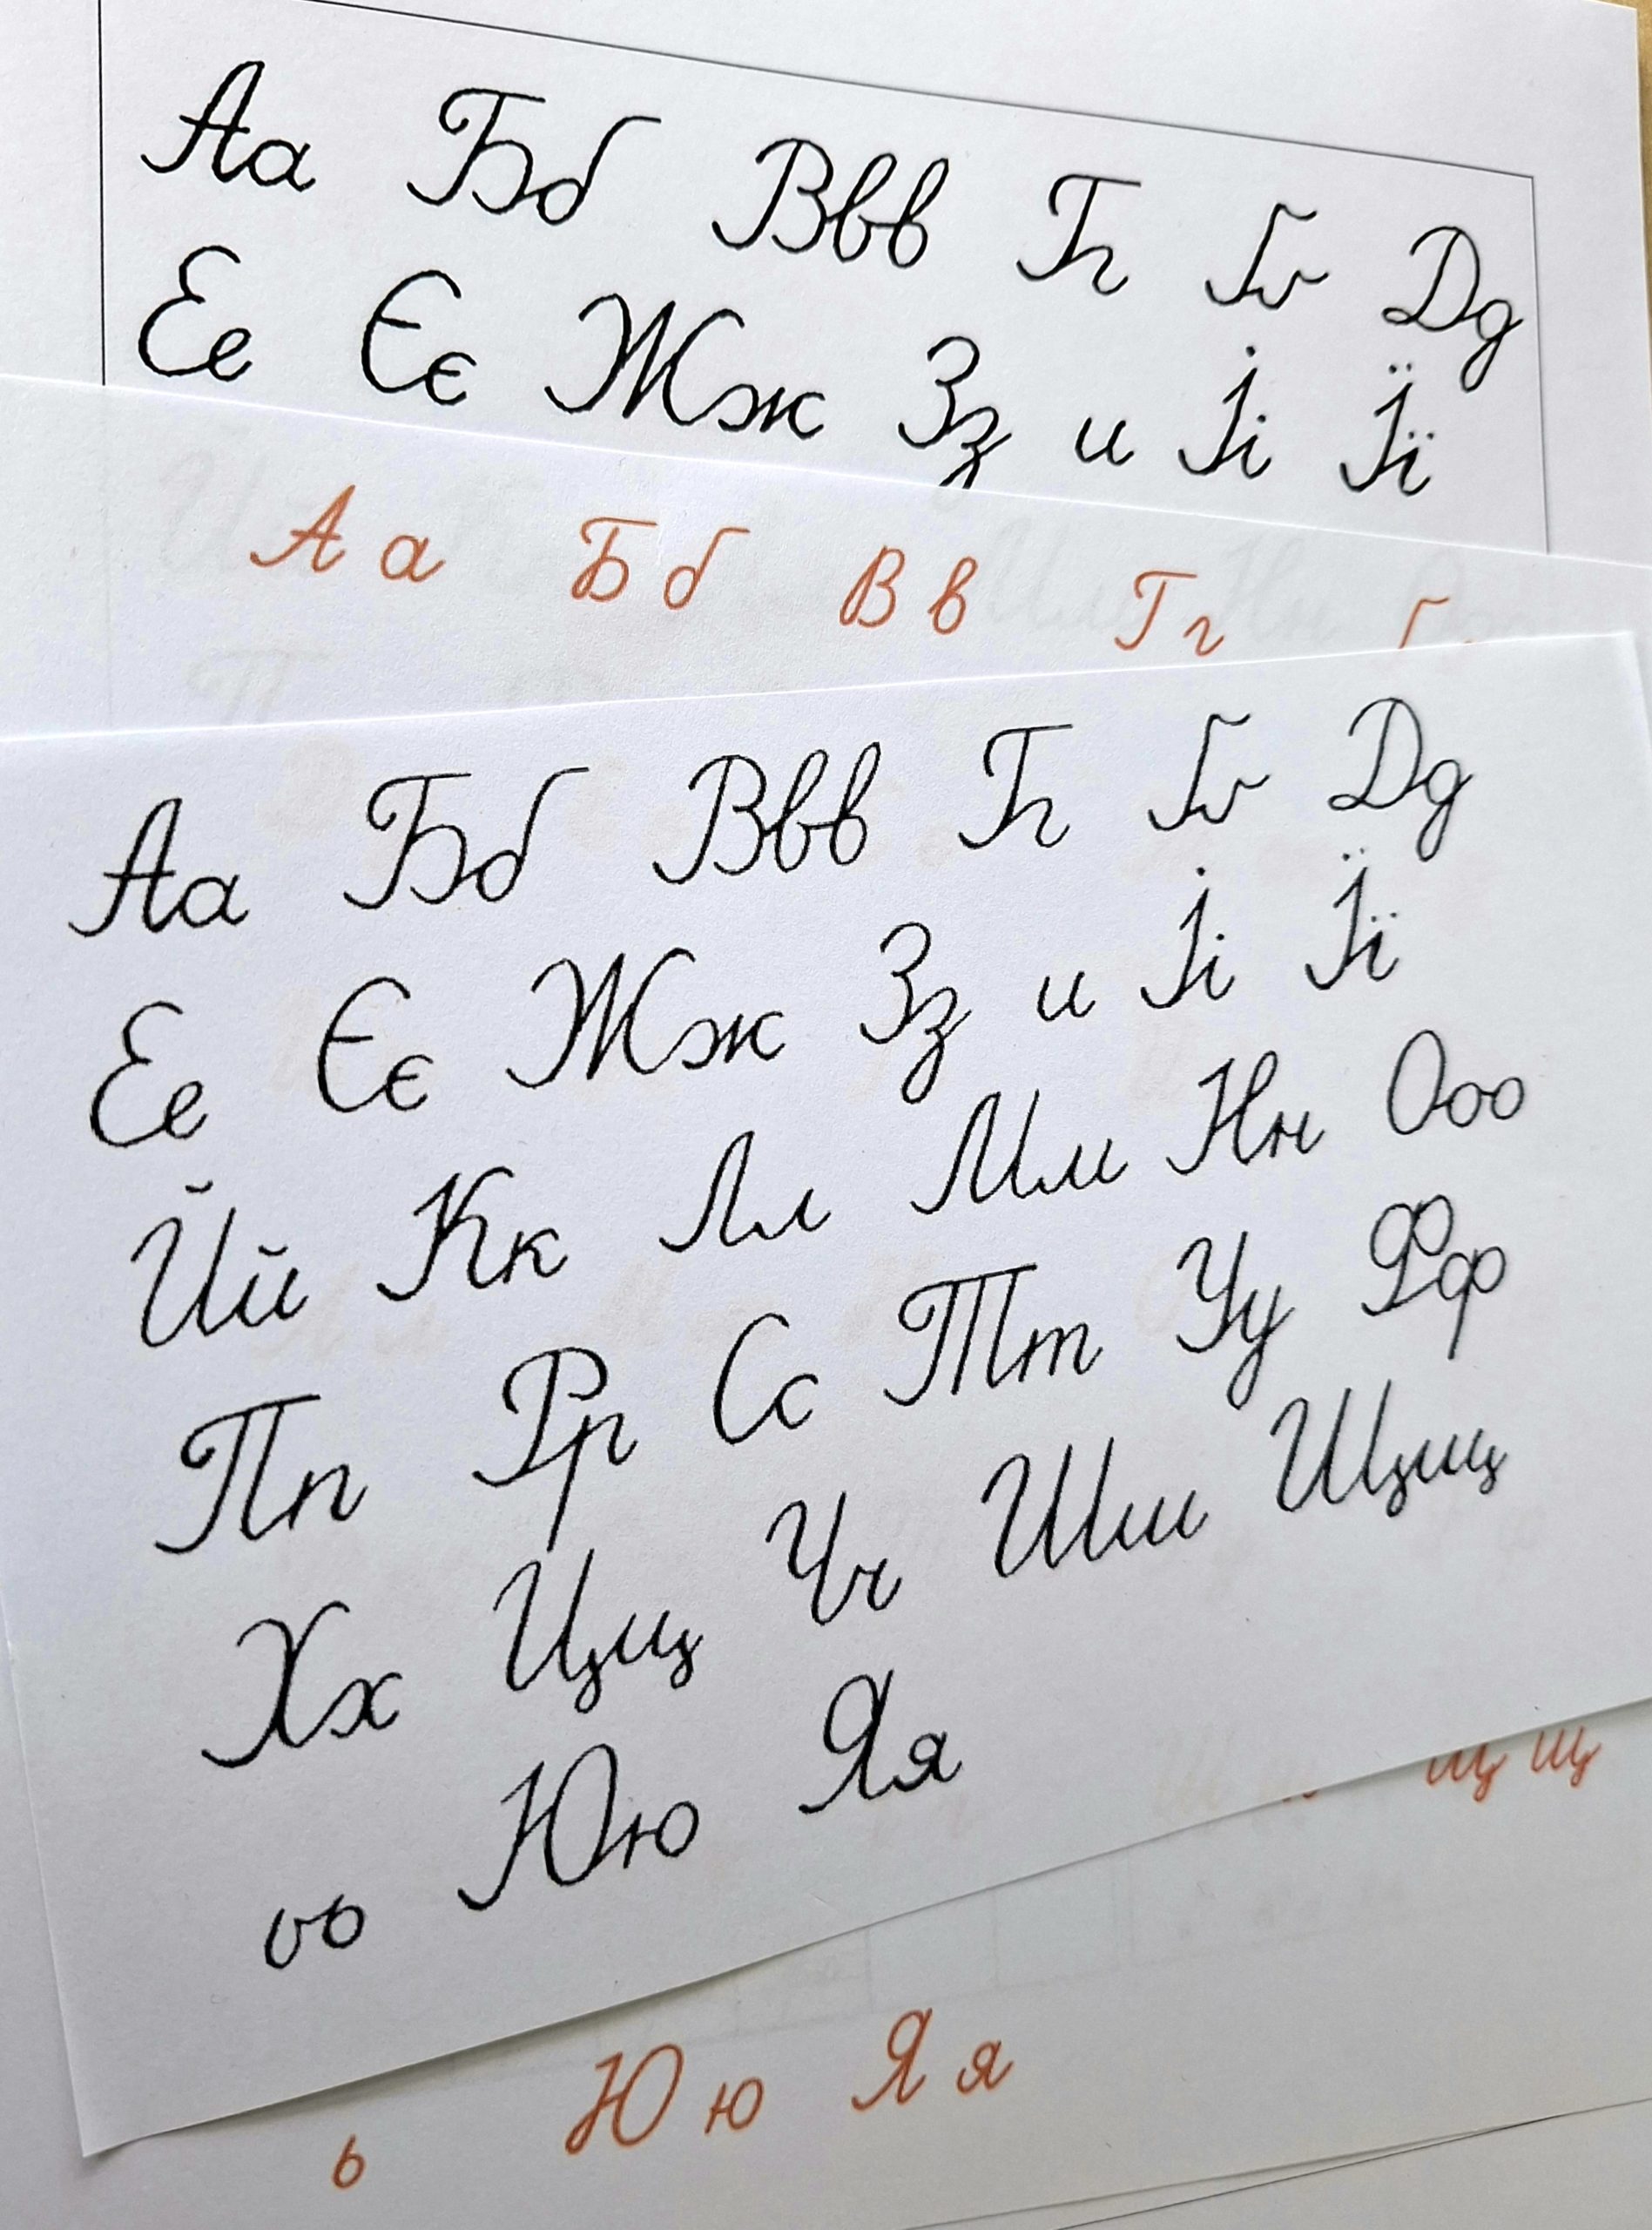 Аа Бб Ввв Гг Ґґ Дд
Ее Єє Жж Зз и Іі Її
А а Б б В в Г г
Аа Бб Ввв Гг Ґґ Дд
Ее Єє Жж Зз и Іі Її
Йй Кк Лл Мм Нн Ооо
Пп Рр Сс Тт Уу Фф
Хх Цц Чч Шш Щщ
ьь Юю Яя
щ щ
ь Ю ю Я я